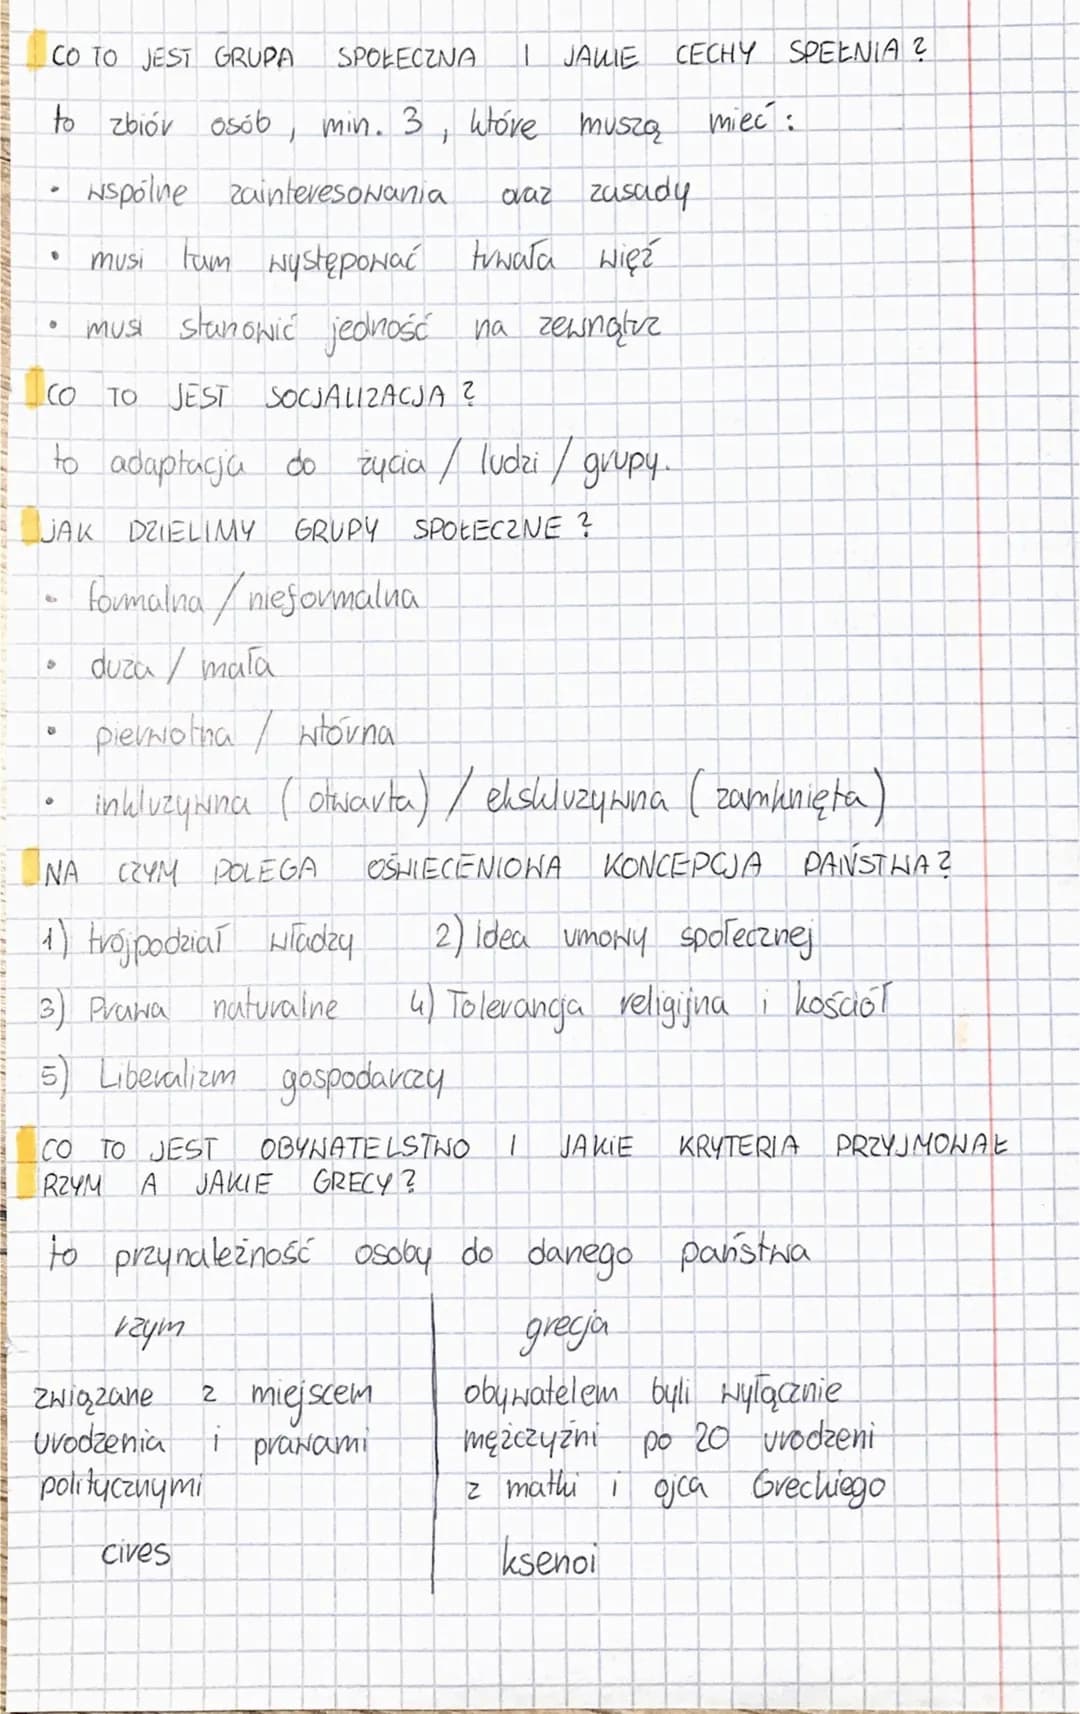 CO TO JEST GRUPA SPOŁECZNA I JAKIE CECHY SPEŁNIA?
to zbiór osób, min. 3, które muszą mieć:
• wspólne zainteresowania oraz zasady
• musi tam występować trwała więź
• musi stanowić jedność na zewnątrz
CO TO JEST SOCJALIZACJA?
to adaptacja do życia / ludzi / grupy.
JAK DZIELIMY GRUPY SPOŁECZNE?
• formalna / nieformalna
• duża / mała
• pierwotna / wtórna
• inkluzywna (otwarta) / ekskluzywna (zamknięta)
NA CZYM POLEGA OŚWIECENIOWA KONCEPCJA PAŃSTWA?
1) trójpodział władzy 2) Idea umowy społecznej
3) Prawa naturalne 4) Tolerancja religijna i kościół
5) Liberalizm gospodarczy
CO TO JEST OBYWATELSTWO I JAKIE KRYTERIA PRZYJMOWAŁ
RZYM A JAKIE GRECY?
to przynależność osoby do danego państwa
rzym
związane z miejscem
urodzenia i prawami
politycznymi
cives
grecja
obywatelem byli wyłącznie
mężczyźni po 20 urodzeni
z matki i ojca Greckiego
ksenoi